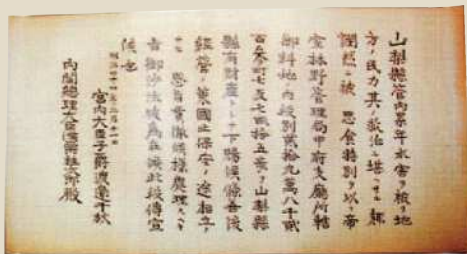 山梨縣管内累年水害ヲ被リ地
方ノ民力其ノ救治ニ堪ヘサル趣
憫然ニ被 思食特別ヲ以テ帝
室林野管理局甲府支廳所轄
御料地ノ内段別貳拾九萬八千貳
百參町七反七畝拾五英ヲ山梨縣
縣有財産トシテ下賜候條吾後
經營ノ業國土保安ノ途相立テ
サセ 恩旨貫徹候樣處理スヘキ
旨御沙汰被爲在候此段傳宣
候也
明治四十四年三月十一日
宮内大臣子爵渡邊千秋
内閣總理大臣侯爵桂太郎殿